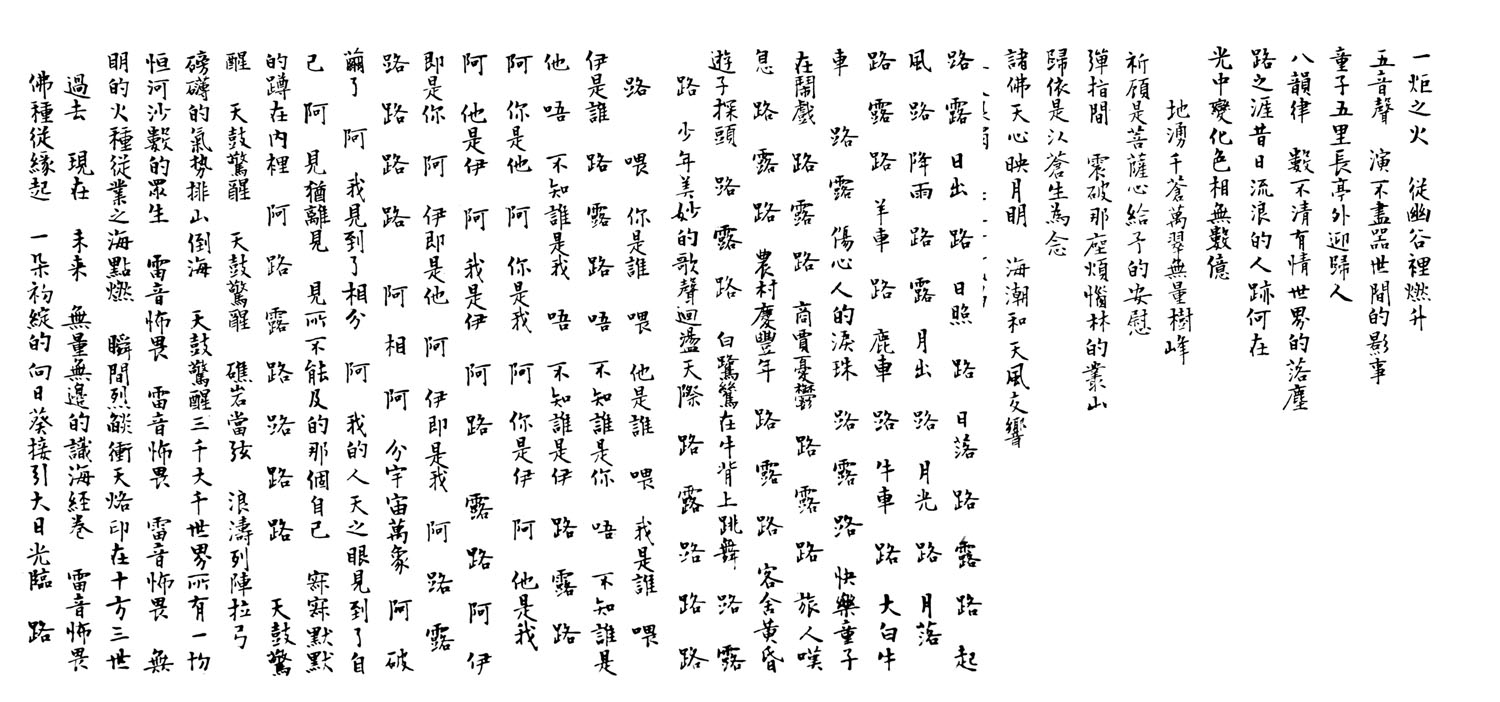 一炬之火　從幽谷裡燃升
五音聲　演不盡器世間的影事
童子五里長亭外迎歸人
八韻律　數不清有情世界的落塵
路之涯昔日流浪的人跡何在
光中變化色相無數億
地湧千蒼萬翠無量樹峰
祈願是菩薩心給予的安慰
彈指間　震破那座煩惱林的叢山
歸依是以蒼生為念
諸佛天心映月明　海潮和天風交響
路　露　日出　路　日照　路　日落　路　露　路　起
風　路　降雨　路　露　月出　路　月光　路　月落
路　露　路　羊車　路　鹿車　路　牛車　路　大白牛
車　路　露　傷心人的淚珠　路　露　路　快樂童子
在鬧戲　路　露　路　商賈憂鬱　路　露　路　旅人嘆
息　路　露　路　農村慶豐年　路　露　路　客舍黃昏
遊子探頭　路　露　路　白鷺鷥在牛背上跳舞　路　露
路　少年美妙的歌聲迴盪天際　路　露　路　路　路
路　喂　你是誰　喂　他是誰　喂　我是誰　喂
伊是誰　路　露　路　唔　不知誰是你　唔　不知誰是
他　唔　不知誰是我　唔　不知誰是伊　路　露　路
阿　你是他　阿　你是我　阿　你是伊　阿　他是我
阿　他是伊　阿　我是伊　阿　路　露　路　阿　伊
即是你　阿　伊即是他　阿　伊即是我　阿　路　露
路　路　路　路　阿　相　阿　分宇宙萬象　阿　破
繭了　阿　我見到了相分　阿　我的人天之眼見到了自
己　阿　見猶離見　見所不能及的那個自己　寂寂默默
的蹲在內裡　阿　路　露　路　路　路　路　天鼓驚
醒　天鼓驚醒　天鼓驚醒　礁岩當弦　浪濤列陣拉弓
磅礡的氣勢排山倒海　天鼓驚醒三千大千世界所有一切
恒河沙數的眾生　雷音怖畏　雷音怖畏　雷音怖畏　無
明的火種從業之海點燃　瞬間烈燄衝天烙印在十方三世
過去　現在　未來　無量無邊的識海経卷　雷音怖畏
佛種從緣起　一朵初綻的向日葵接引大日光臨　路